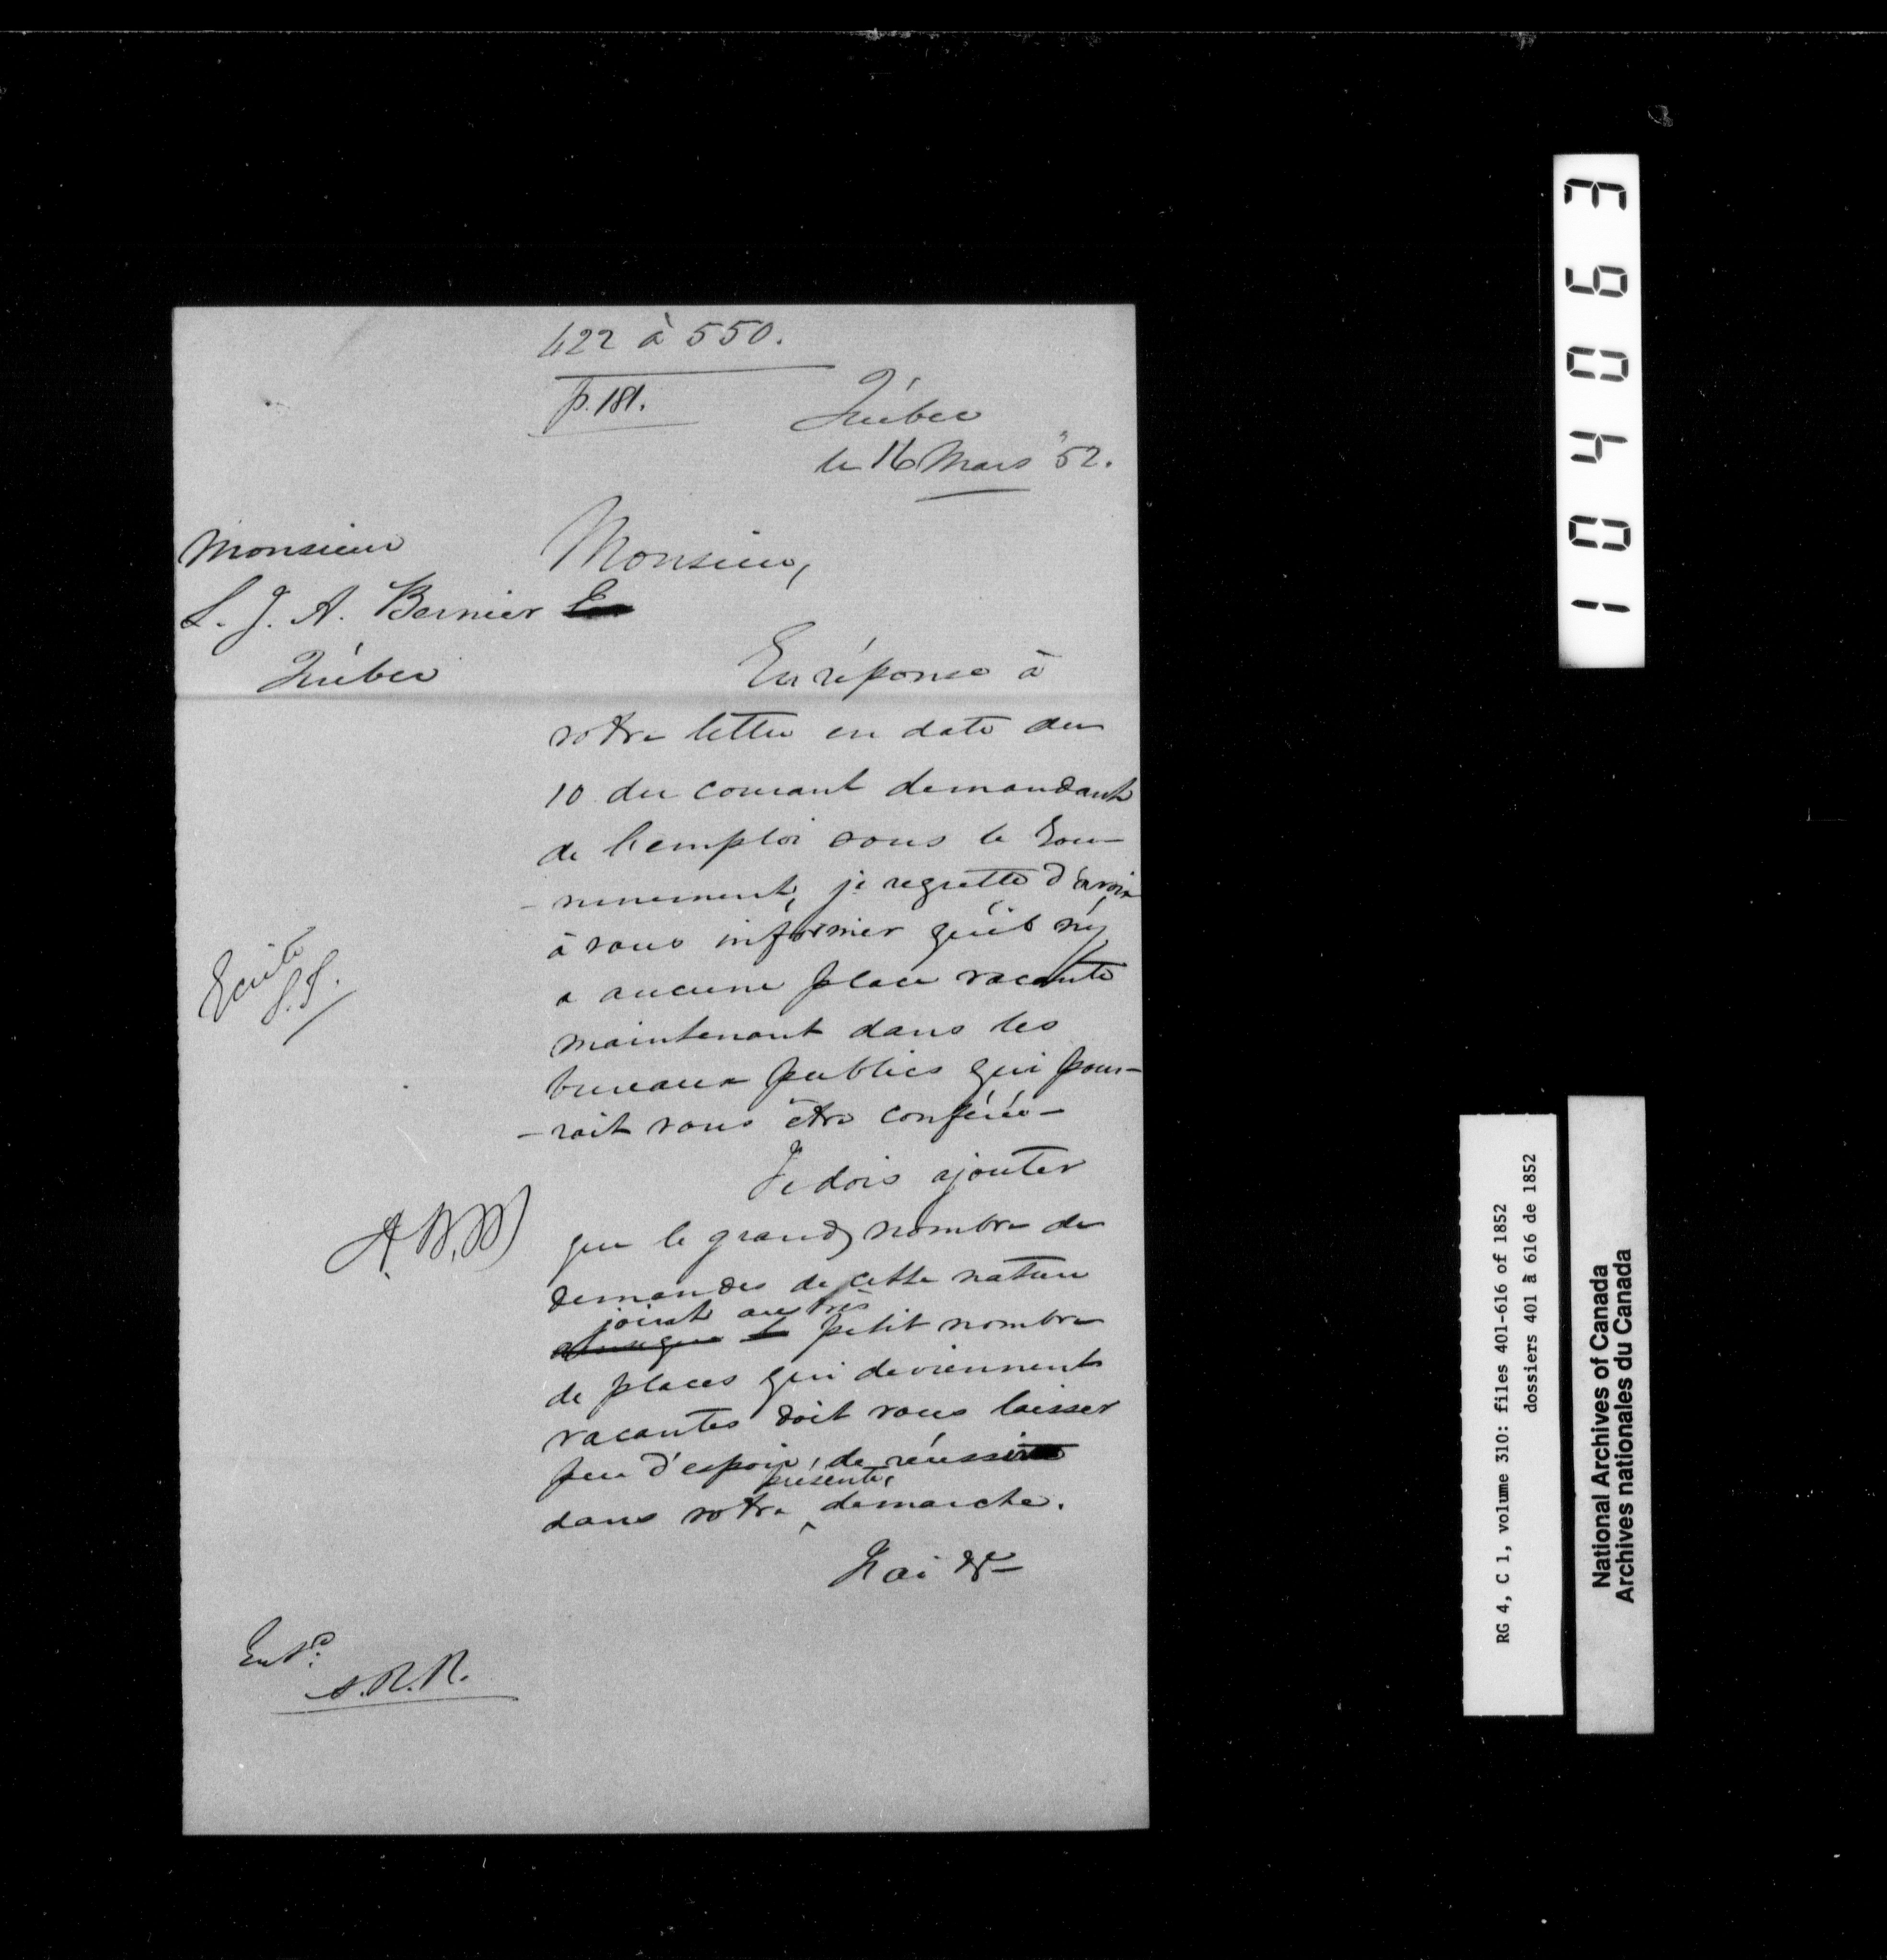 422 à 550.
p. 181.
Québec
le 16 Mars '52.
Monsieur
L. J. A. Bernier
Québec
Monsieur,
En réponse à
votre lettre en date du
10 du courant demandant
de l'emploi sous le Gou-
-vernement, je regrette d'avoir
à vous informer qu'il n'y
a aucune place vacante
maintenant dans les
bureaux publics qui pour-
-rait vous être conférée-
Je dois ajouter
que le grand nombre de
demandes de cette nature
joint au très
ainsi que le petit nombre
de places qui deviennent
vacantes doit vous laisser
peu d'espoir, de réussir
présente
dans votre demarche.
J'ai &c-
Ecrite
A.R.R.
Entd
RG 4, C 1, volume 310: files 401-616 of 1852
dossiers 401 à 616 de 1852
National Archives of Canada
Archives nationales du Canada
104063